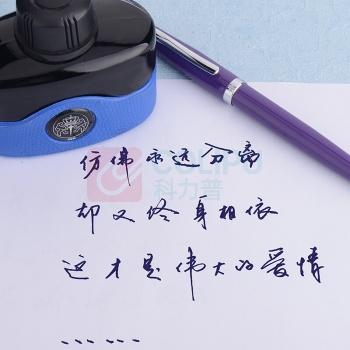 仿佛永远分离
却又终身相依
这才是伟大的爱情
……
COLIPU
科力普